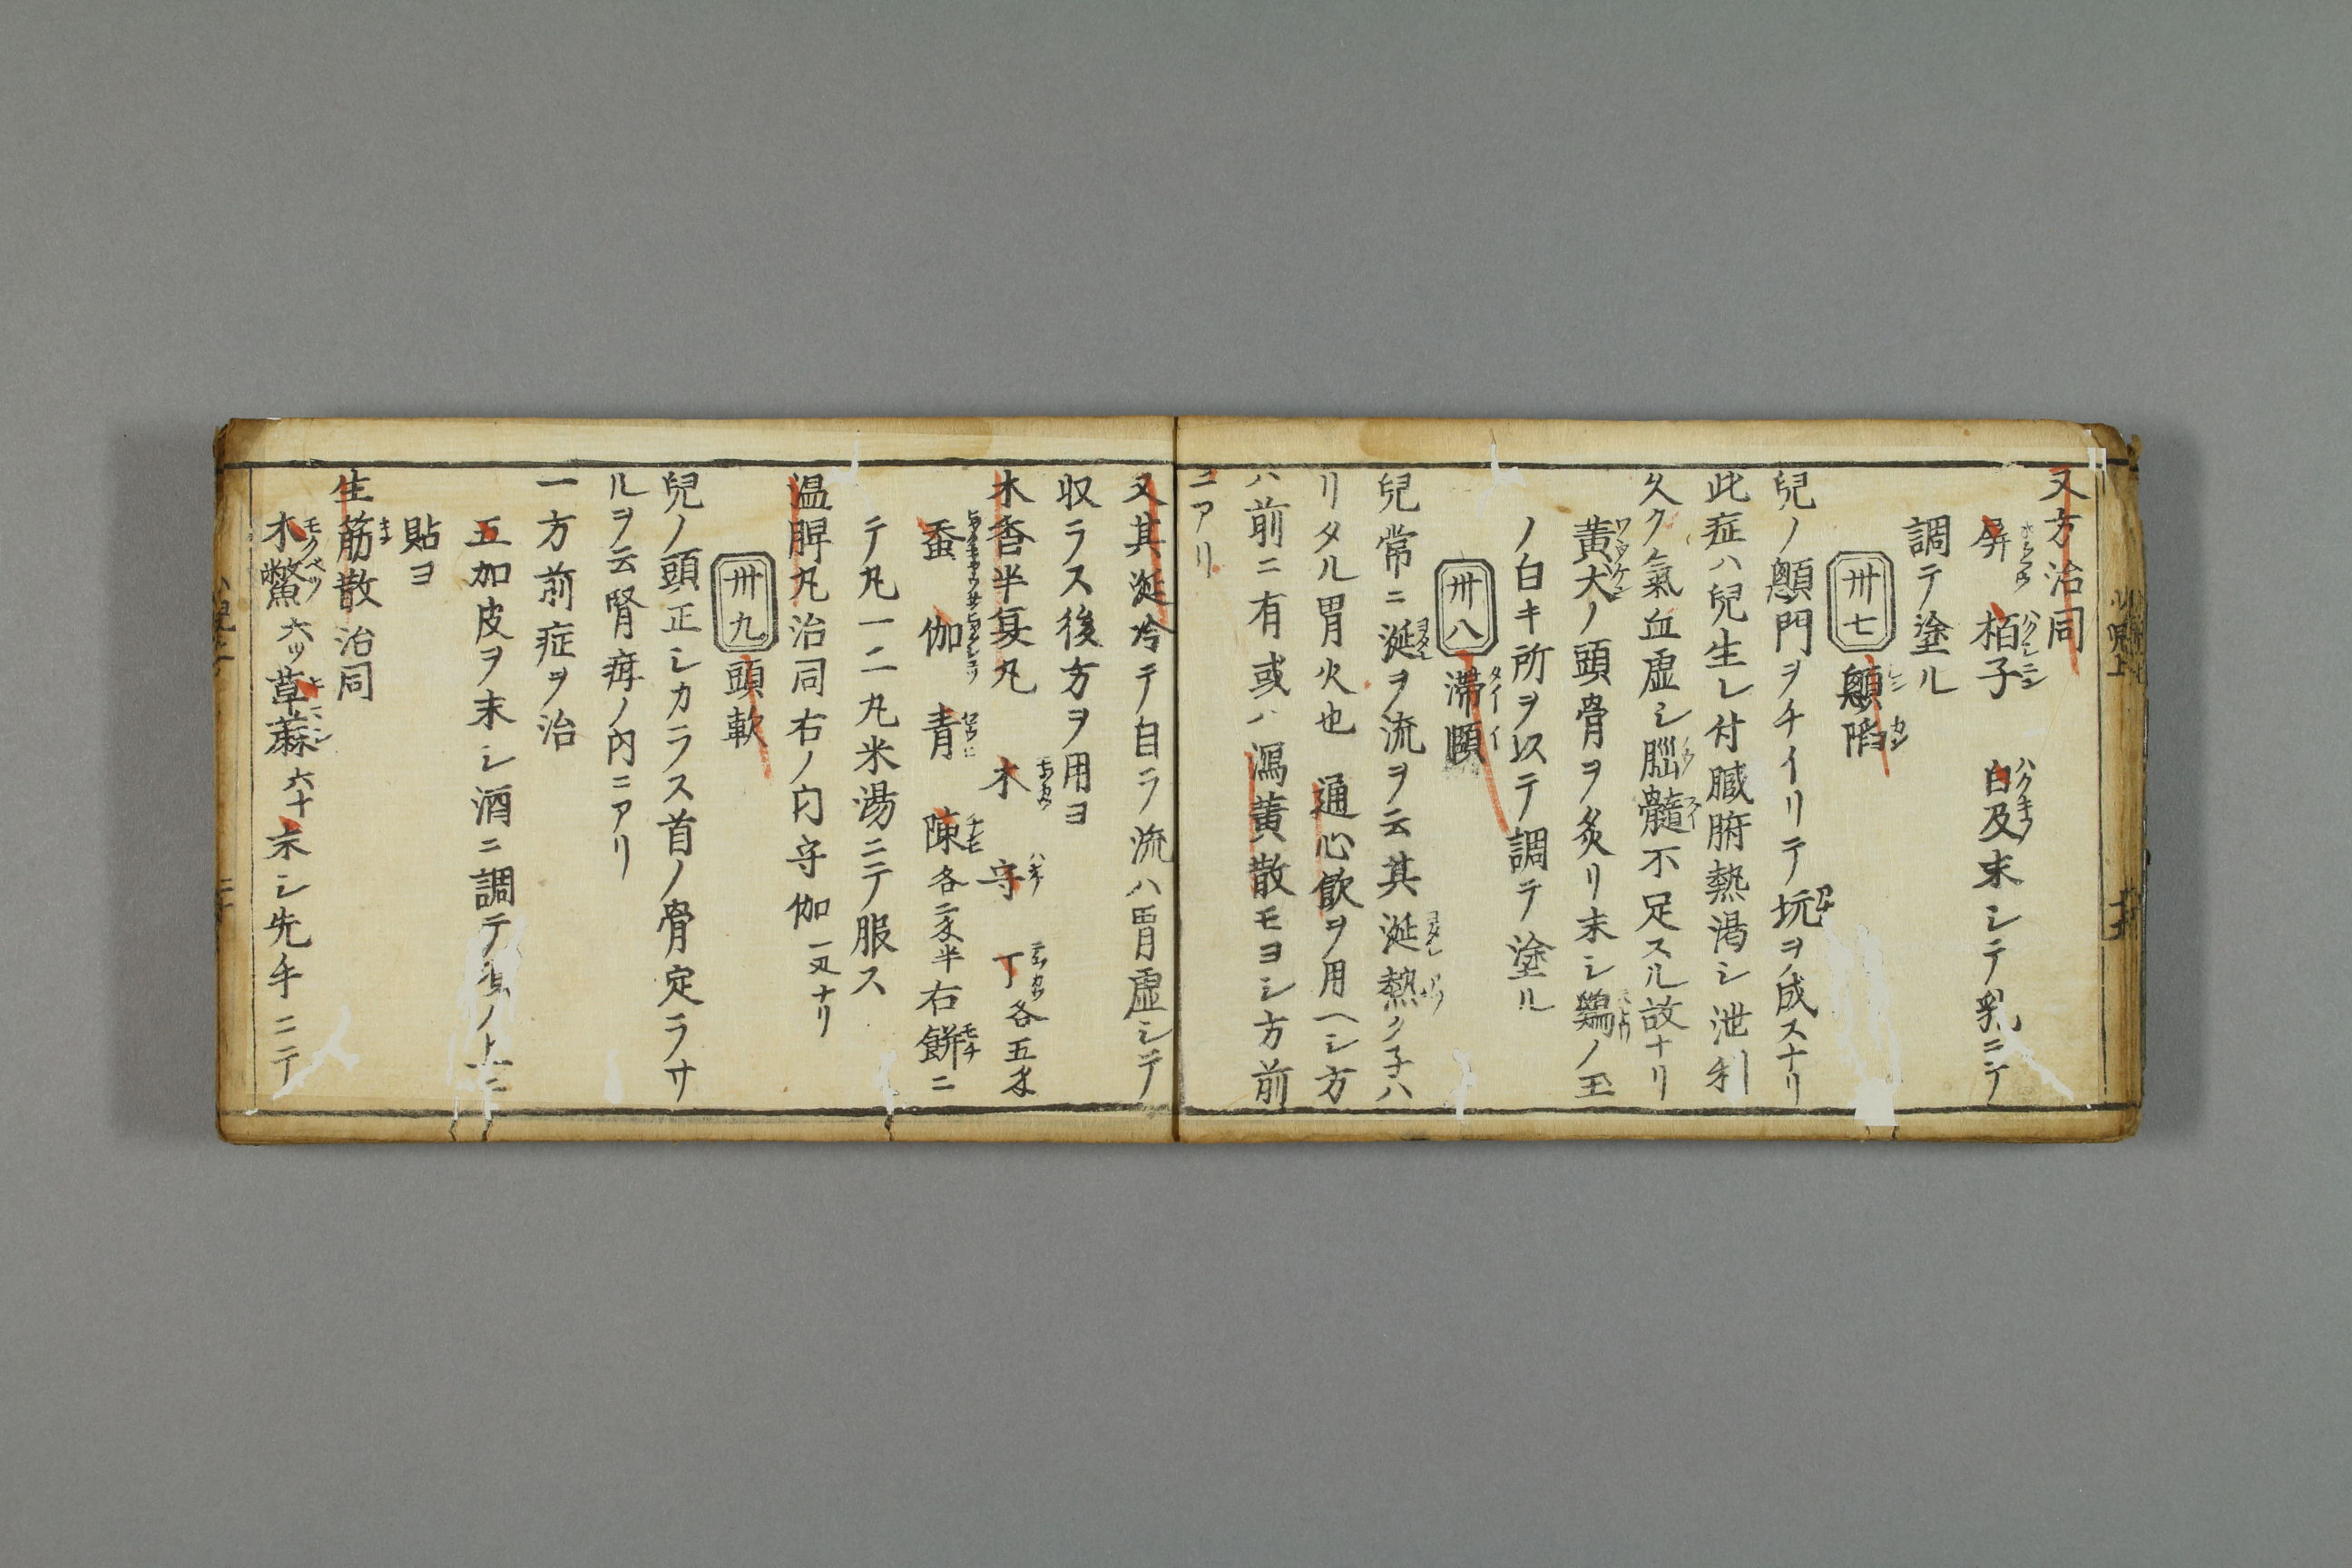 又方治同
屏 栢子 白及末シテ乳ニテ
調テ塗ル
卅七 顖陷
兒ノ顖門ヲチイリテ坑ヲ成スナリ
此症ハ兒生レ付臓腑熱渇シ泄利
久ク氣血虚シ腦髓不足スル故ナリ
黄犬ノ頭骨ヲ炙リ末シ鷄ノ玉
ノ白キ所ヲ以テ調テ塗ル
卅八 滞頤
兒常ニ涎ヲ流ヲ云其涎熱ク子ハ
リタル胃火也 通心飲ヲ用ヘシ方
ハ前ニ有或ハ瀉黄散モヨシ方前
ニアリ
又其涎冷テ自ラ流ハ胃虚シテ
収ラス後方ヲ用ヨ
木香半夏丸 木 守 丁各五
蚕 伽 青 陳各二 半右餅ニ
テ丸一二丸米湯ニテ服ス
温脾丸治同右ノ内守伽 ナリ
卅九 頭軟
兒ノ頭正シカラス首ノ骨定ラサ
ルヲ云腎疳ノ内ニアリ
一方前症ヲ治
五加皮ヲ末シ酒ニ調テ ノ上ニ
貼ヨ
生筋散治同
木鱉六ツ萆蔴六十末シ先手ニテ